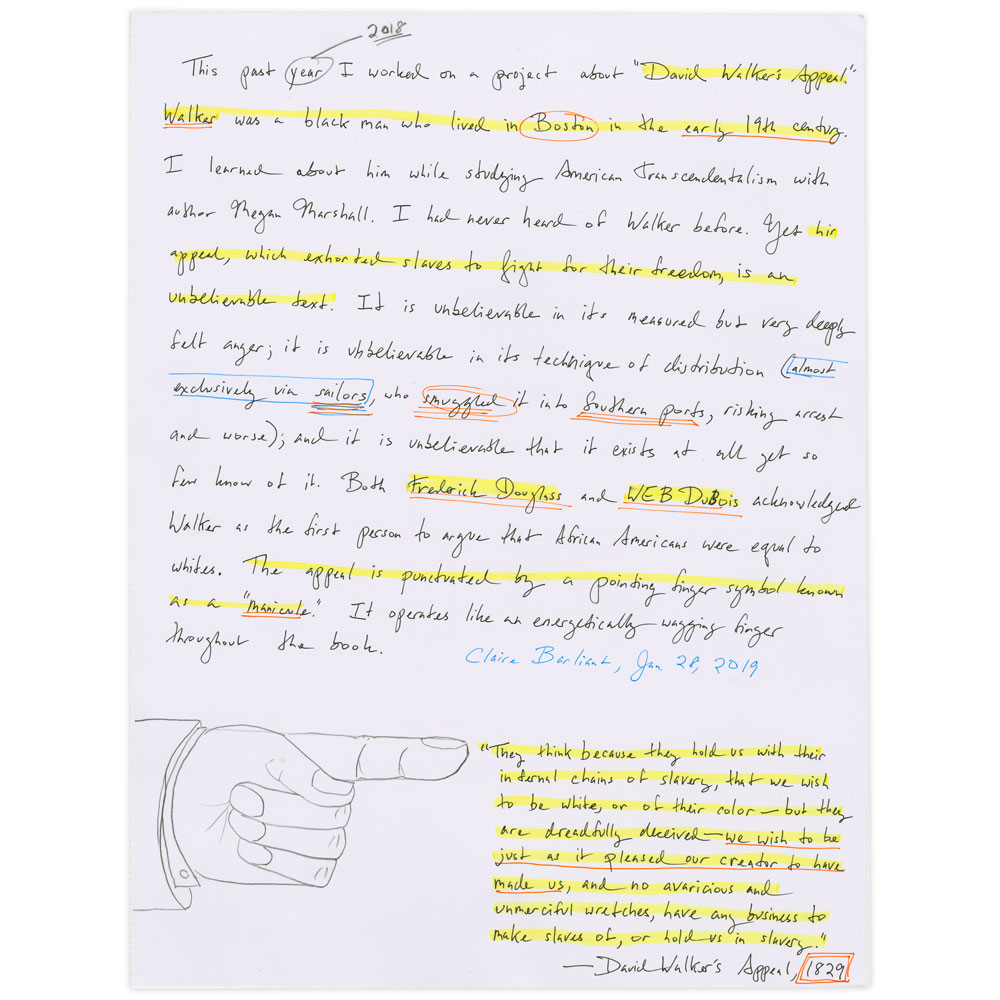 2018
This past year I worked on a project about "David Walker's Appeal."
Walker was a black man who lived in Boston in the early 19th century.
I learned about him while studying American Transcendentalism with
author Megan Marshall. I had never heard of Walker before. Yet his
appeal, which exhorted slaves to fight for their freedom, is an
unbelievable text. It is unbelievable in its measured but very deeply
felt anger; it is unbelievable in its technique of distribution (almost
exclusively via sailors, who smuggled it into Southern ports, risking arrest
and worse); and it is unbelievable that it exists at all yet so
few know of it. Both Frederick Douglass and WEB DuBois acknowledged
Walker as the first person to argue that African Americans were equal to
whites. The appeal is punctuated by a pointing finger symbol known
as a "manicule." It operates like an energetically wagging finger
throughout the book.
Claire Barliant, Jan 28, 2019
"They think because they hold us with their
infernal chains of slavery, that we wish
to be white, or of their color — but they
are dreadfully deceived — we wish to be
just as it pleased our creator to have
made us, and no avaricious and
unmerciful wretches, have any business to
make slaves of, or hold us in slavery."
— David Walker's Appeal, 1829